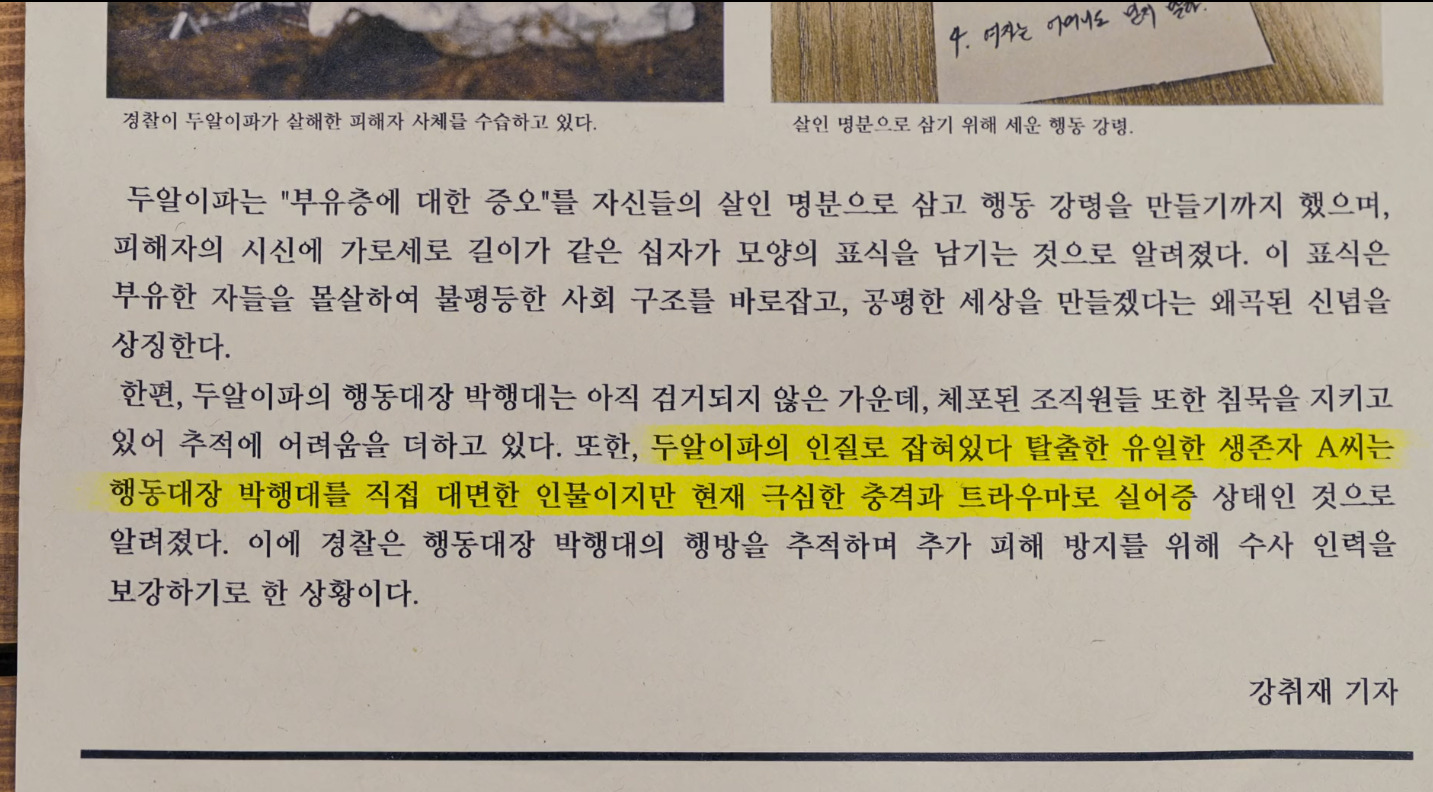 4. 여자는 어머니도 믿지 말라.
경찰이 두알이파가 살해한 피해자 사체를 수습하고 있다.
살인 명분으로 삼기 위해 세운 행동 강령.
두알이파는 "부유층에 대한 증오"를 자신들의 살인 명분으로 삼고 행동 강령을 만들기까지 했으며,
피해자의 시신에 가로세로 길이가 같은 십자가 모양의 표식을 남기는 것으로 알려졌다. 이 표식은
부유한 자들을 몰살하여 불평등한 사회 구조를 바로잡고, 공평한 세상을 만들겠다는 왜곡된 신념을
상징한다.
한편, 두알이파의 행동대장 박행대는 아직 검거되지 않은 가운데, 체포된 조직원들 또한 침묵을 지키고
있어 추적에 어려움을 더하고 있다. 또한, 두알이파의 인질로 잡혀있다 탈출한 유일한 생존자 A씨는
행동대장 박행대를 직접 대면한 인물이지만 현재 극심한 충격과 트라우마로 실어증 상태인 것으로
알려졌다. 이에 경찰은 행동대장 박행대의 행방을 추적하며 추가 피해 방지를 위해 수사 인력을
보강하기로 한 상황이다.
강취재 기자